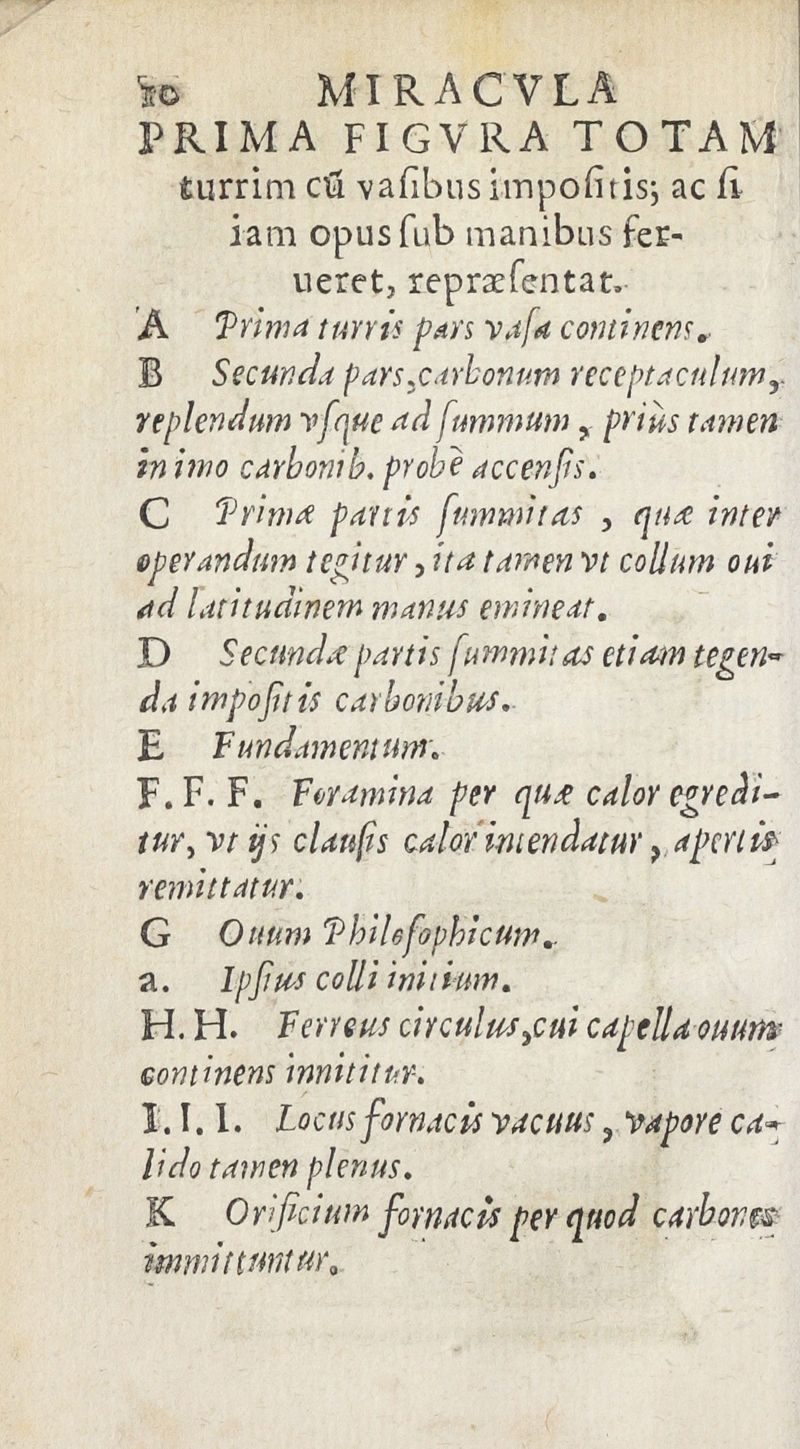 10 MIRACVLA
PRIMA FIGVRA TOTAM
turrim cũ vaſibus impoſitis; ac ſi
iam opus ſub manibus fer-
ueret, repræſentat.
A Prima turris pars vaſa continens.
B Secunda pars, carbonum receptaculum,
replendum vſque ad ſummum, priùs tamen
in imo carbonib. probè accenſis.
C Primæ partis ſummitas, quæ inter
operandum tegitur, ita tamen vt collum oui
ad latitudinem manus emineat.
D Secundæ partis ſummitas etiam tegen-
da impoſitis carbonibus.
E Fundamentum.
F. F. F. Foramina per quæ calor egredi-
tur, vt ijs clauſis calor intendatur, apertis
remittatur.
G Ouum Philoſophicum.
a. Ipſius colli initium.
H. H. Ferreus circulus, cui capella ouum
continens innititur.
I. I. I. Locus fornacis vacuus, vapore ca-
lido tamen plenus.
K Orificium fornacis per quod carbones
immittuntur.